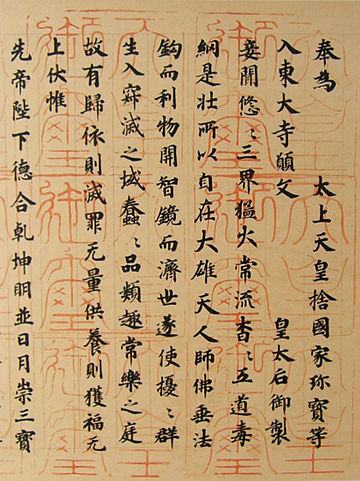 奉為　太上天皇捨國家珎寶等
入東大寺願文　皇太后御製
妾聞悠〻三界猛火常流杳〻五道毒
網是壯所以自在大雄天人師佛垂法
鈎而利物開智鏡而濟世遂使擾〻群
生入寂滅之域蠢〻品類趣常樂之庭
故有歸依則滅罪无量供養則獲福无
上伏惟
先帝陛下德合乾坤明並日月崇三寶